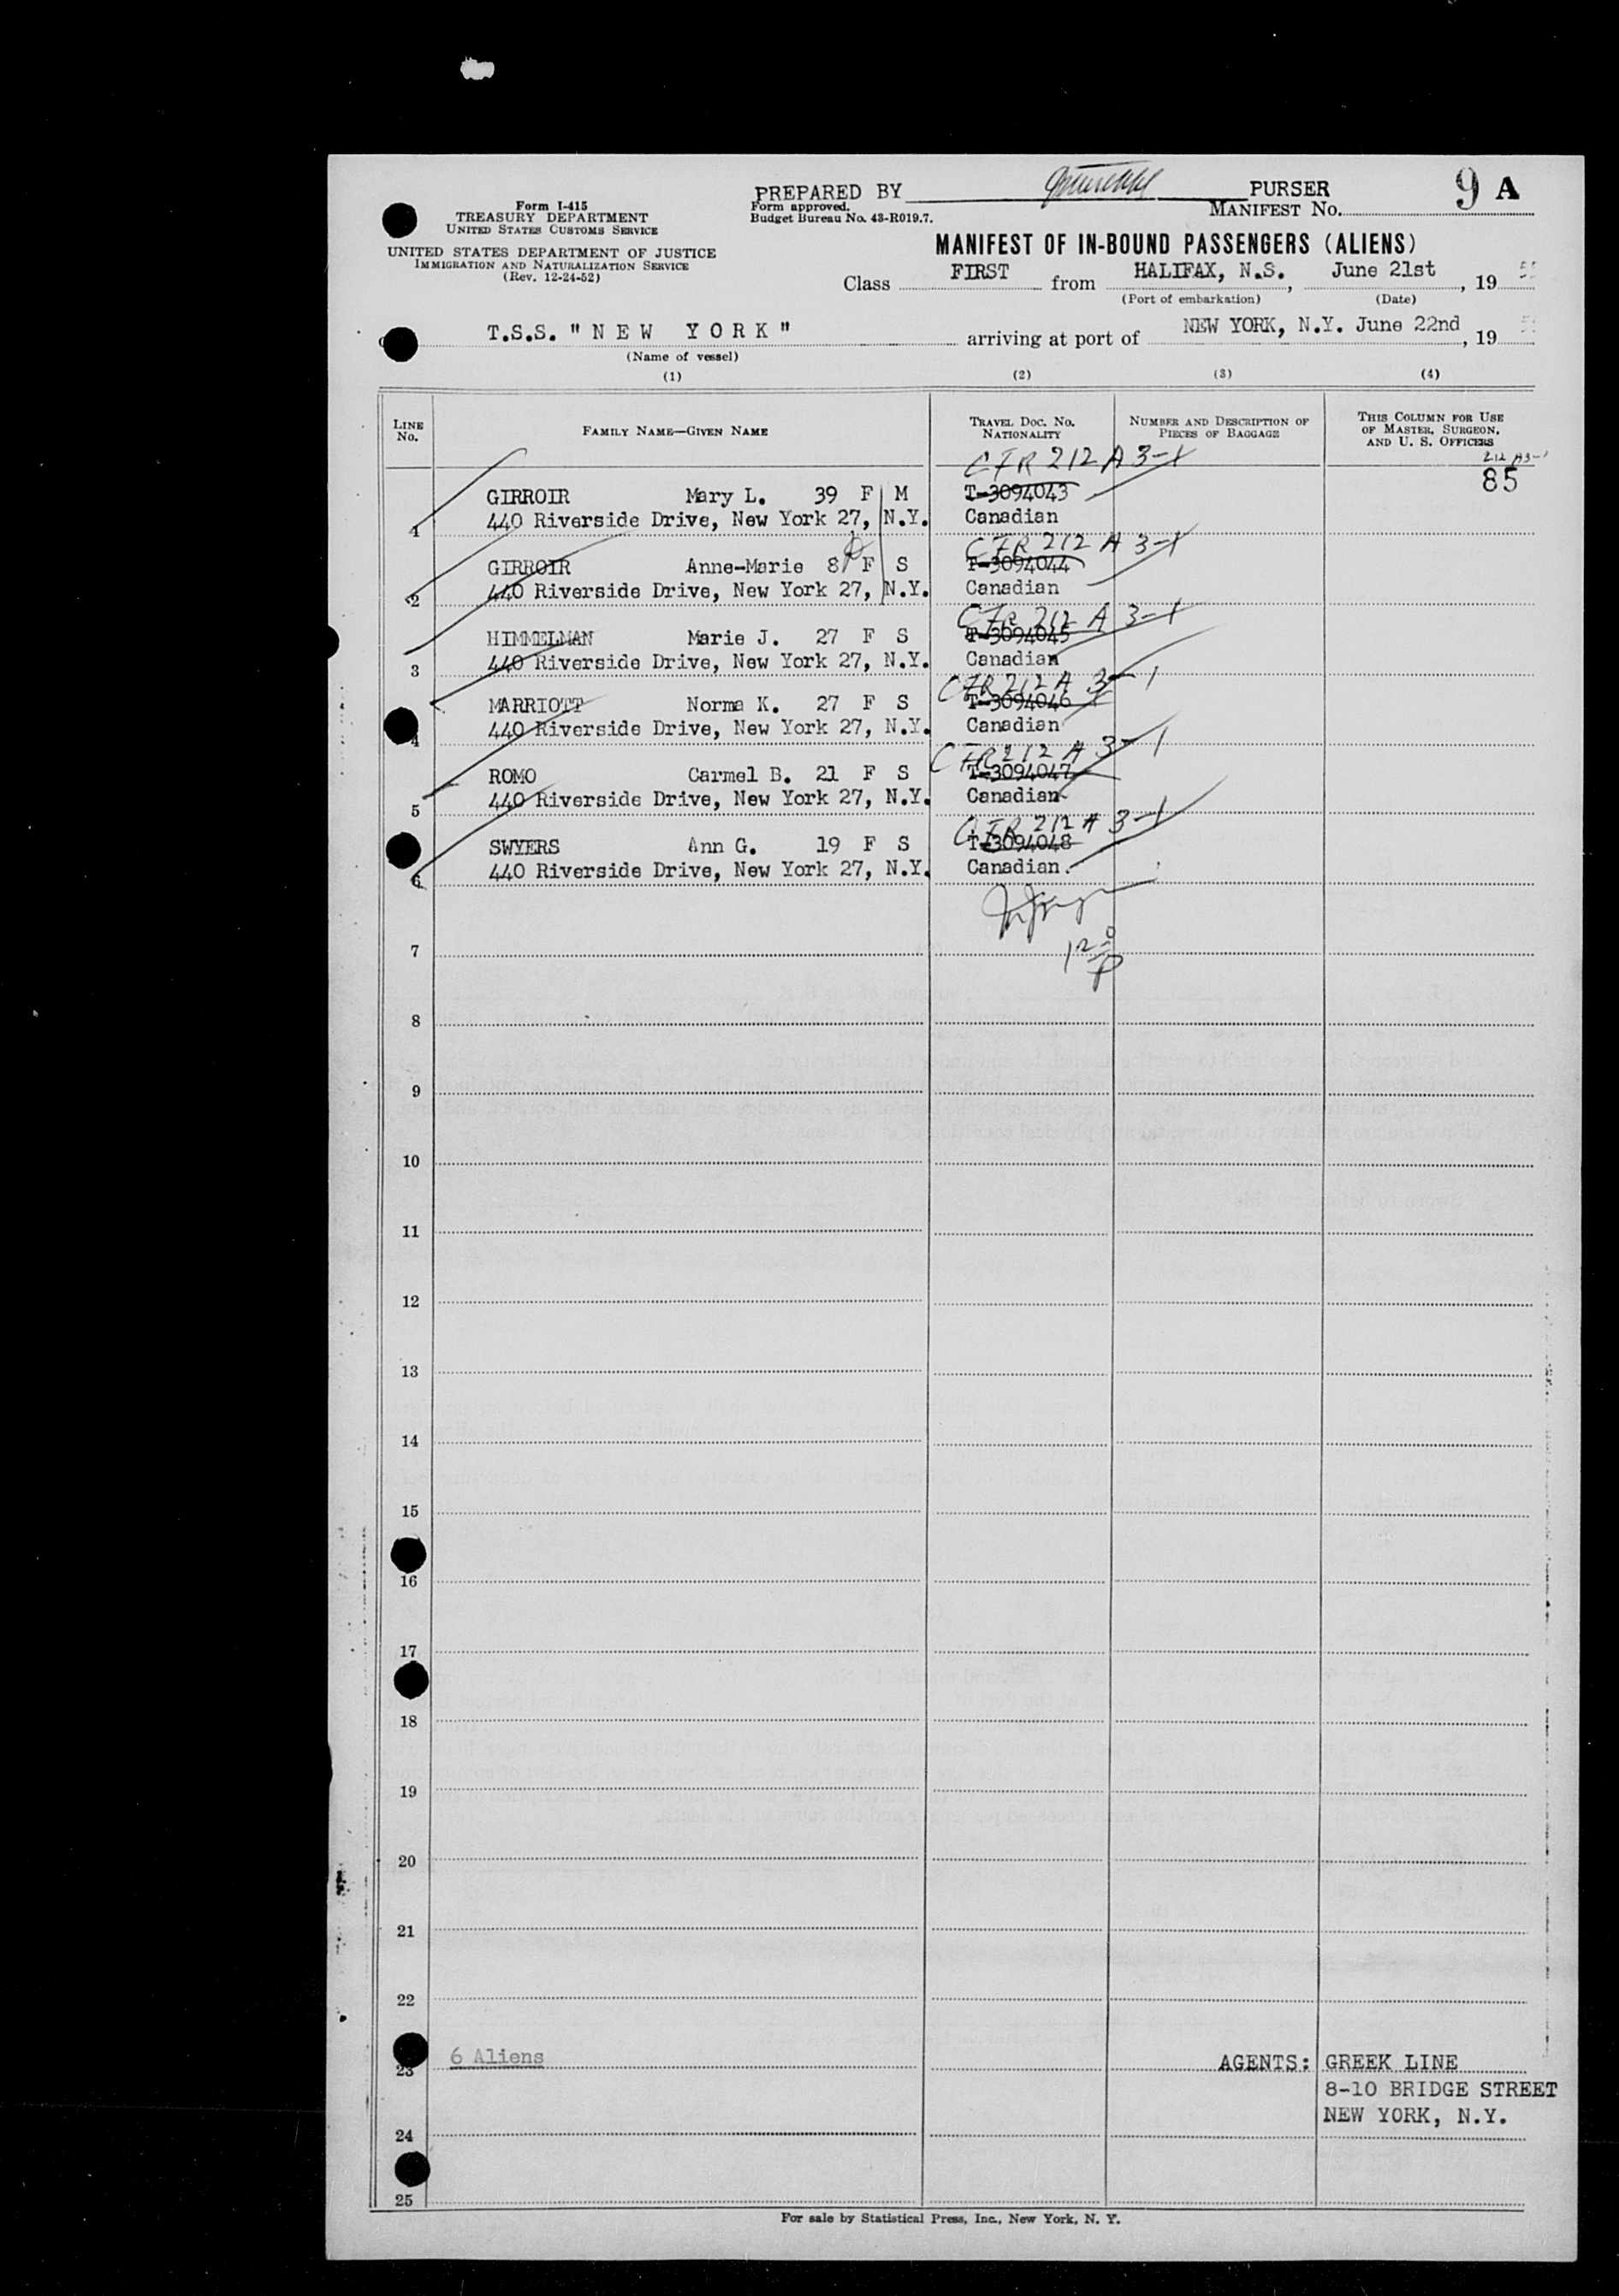 PREPARED BY PURSER 9 A
Form I-415
TREASURY DEPARTMENT
UNITED STATES CUSTOMS SERVICE
Form approved.
Budget Bureau No. 43-R019.7.
MANIFEST No.
UNITED STATES DEPARTMENT OF JUSTICE
IMMIGRATION AND NATURALIZATION SERVICE
(Rev. 12-24-52)
MANIFEST OF IN-BOUND PASSENGERS (ALIENS)
Class FIRST from HALIFAX, N.S., June 21st, 19
(Port of embarkation) (Date)
T.S.S. "NEW YORK" arriving at port of NEW YORK, N.Y. June 22nd, 19
(Name of vessel)
(1) (2) (3) (4)
LINE No. FAMILY NAME—GIVEN NAME TRAVEL DOC. No. NATIONALITY NUMBER AND DESCRIPTION OF PIECES OF BAGGAGE THIS COLUMN FOR USE OF MASTER, SURGEON, AND U. S. OFFICERS
CFR 212 A 3-1 212 A3-1
GIRROIR Mary L. 39 F M T-3094043 85
1 440 Riverside Drive, New York 27, N.Y. Canadian
CFR 212 A 3-1
GIRROIR Anne-Marie 8 F S T-3094044
2 440 Riverside Drive, New York 27, N.Y. Canadian
CFR 212 A 3-1
HIMMELMAN Marie J. 27 F S T-3094045
3 440 Riverside Drive, New York 27, N.Y. Canadian
CFR 212 A 3-1
MARRIOTT Norma K. 27 F S T-3094046
4 440 Riverside Drive, New York 27, N.Y. Canadian
CFR 212 A 3-1
ROMO Carmel B. 21 F S T-3094047
5 440 Riverside Drive, New York 27, N.Y. Canadian
CFR 212 A 3-1
SWYERS Ann G. 19 F S T-3094048
6 440 Riverside Drive, New York 27, N.Y. Canadian.
7
8
9
10
11
12
13
14
15
16
17
18
19
20
21
22
23 6 Aliens AGENTS: GREEK LINE
8-10 BRIDGE STREET
NEW YORK, N.Y.
24
25
For sale by Statistical Press, Inc., New York, N. Y.